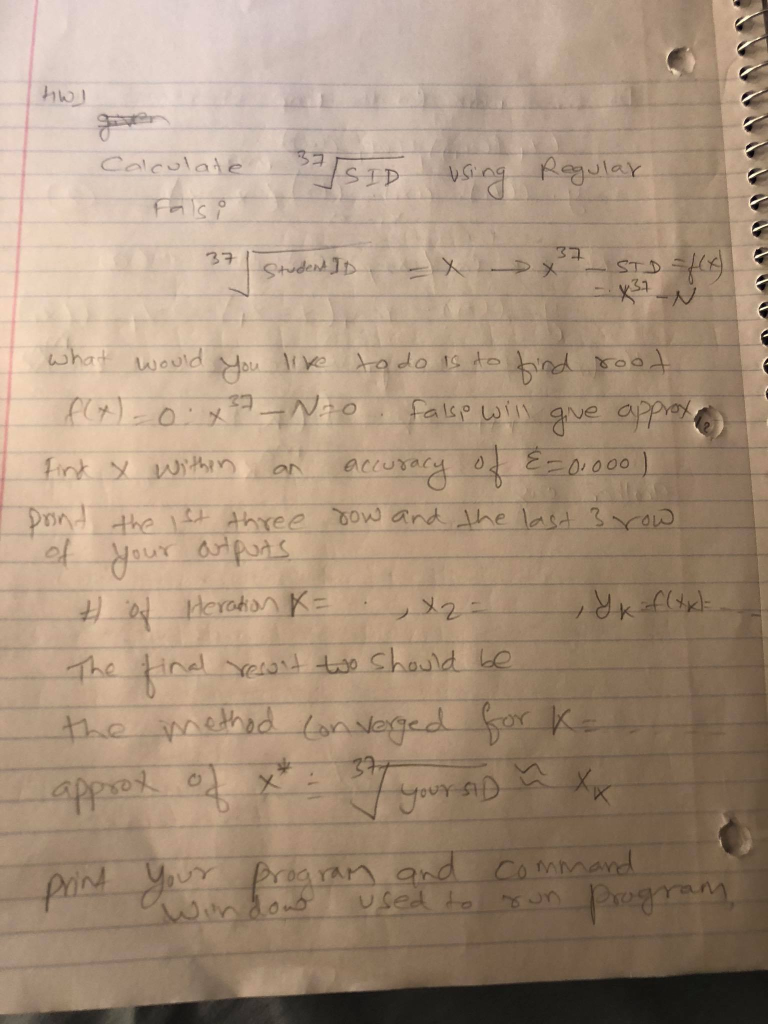 HW1
given
Calculate ³⁷√SID using Regular
Falsi
³⁷√Student ID = x → x³⁷ - SID = f(x)
= x³⁷ - N
what would you like to do is to find root
f(x) = 0 : x³⁷ - N = 0 . falsi will give approx
Find x within an accuracy of ε = 0.0001
print the 1st three row and the last 3 row
of your outputs
# of Iteration K = . , x2 = , yK = f(xK) =
The final result too should be
the method converged for K =
approx of x* = ³⁷√your SID ≈ xK
print your program and command
window used to run program,